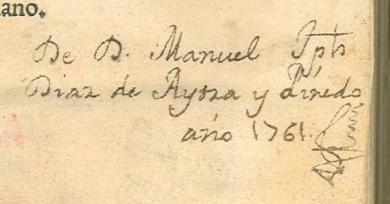 ano.
De D. Manuel Jph
Diaz de Ayssa y Pinedo
año 1761.